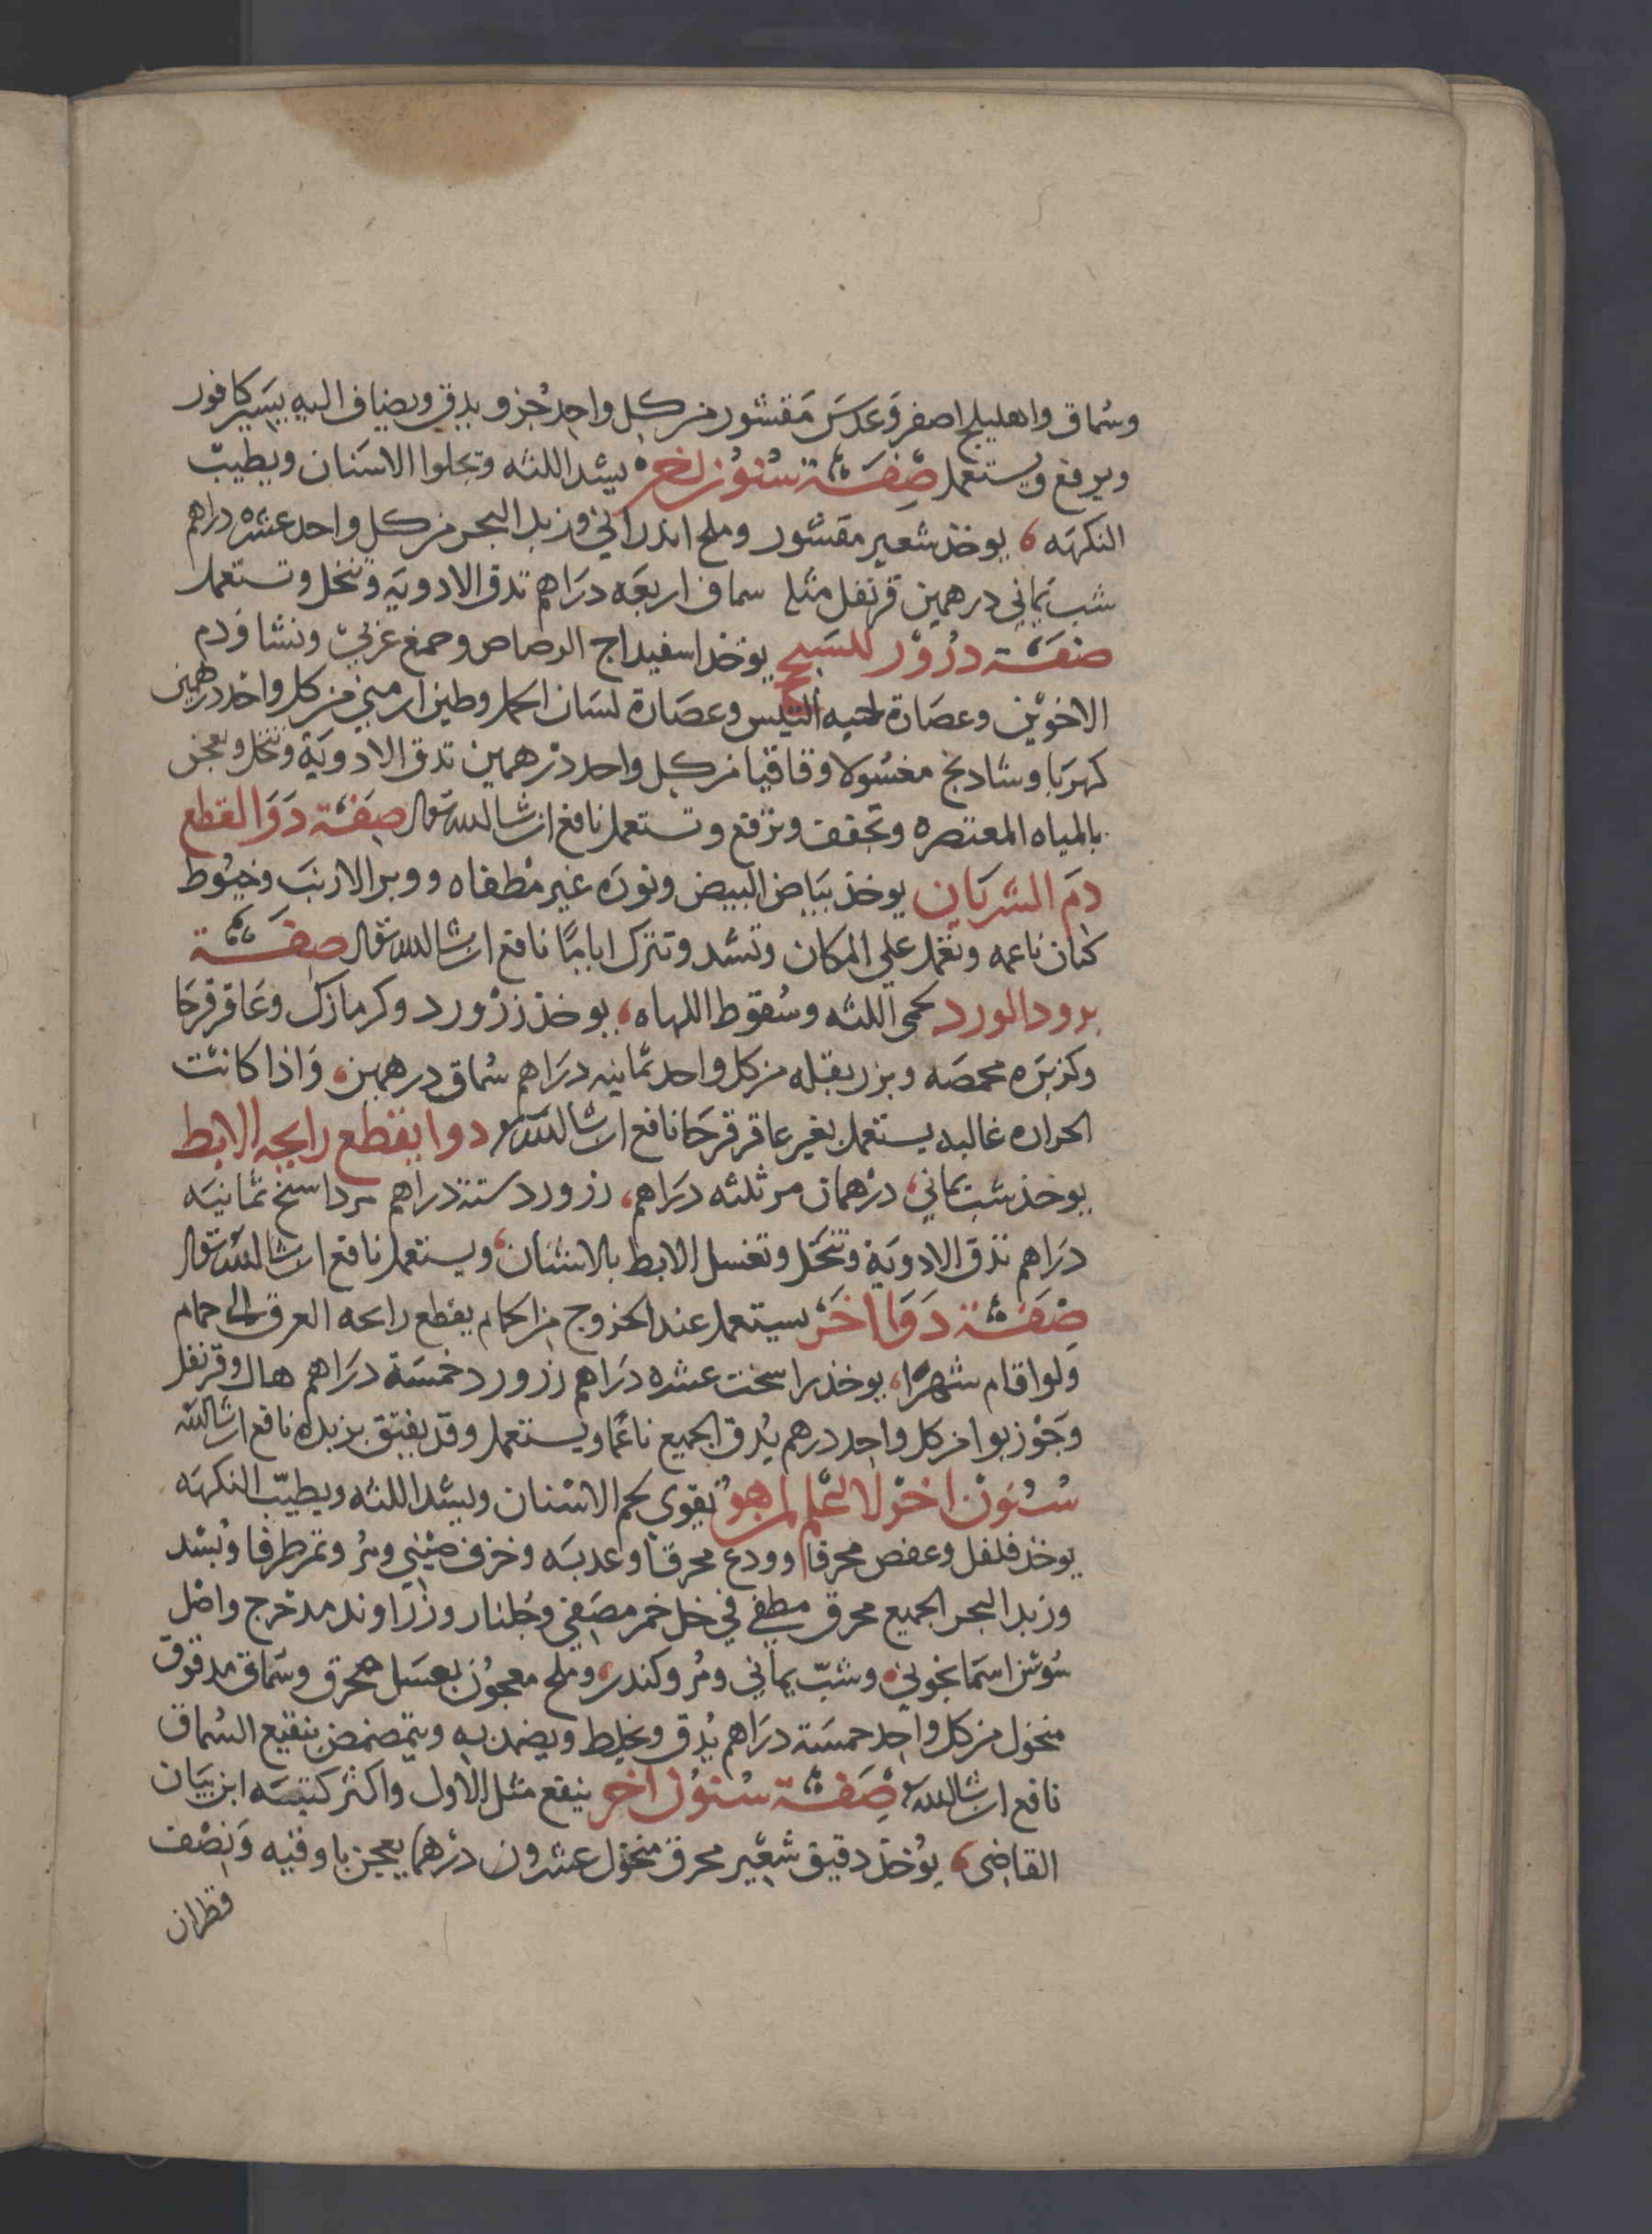 وسُماق واهليلج اصفر وَعدسَ مَقشور من كل واحد جُزو يدق ويضاف اليه يسَير كافور
ويرفع ويُستعمل صِفَة سُنُون اخر يشد اللثه ويجلوا الاسَنان ويطيبْ
النكهَه يوخذ شعير مقشور وملح اندرانى وزبد البحر من كل واحد عشرة دراهم
شب يَمانى درهمين قرنفل مثله سماق اربعَه درَاهم تدق الادويَه وتنخل وتستعمل
صفَة درُوْر للسَبح يوخذ اسفيداج الرصاص وصمغ عربىْ ونشا وَدم
الاخوَين وعصَارة لحيه التيس وعصَارة لسَان الحمل وطين ارمينى من كل واحد درهمين
كهرَبا وشادنج مغسُولا وقاقيا من كل واحد درْهمين تدق الادويَة وتنخل وتعجن
بالمياه المعتصره وتجفف وترْفع وتستعمل نافع ان شا الله تعالى صِفَة دَوَا لقطع
دَم الشريَان يوخذ بيَاض البيض ونورَه غير مْطفاه ووبر الارنبَ وخيُوط
كتان ناعمه وتعْمل على المكان وتشد وتترك اياماً نافع ان شا الله تعالى صفَة
برود الورد لحمى اللثه وسُقوط اللهاه يوخذ زرْورد وكرمازك وعَاقرقرحَا
وكزبَره محمصَه وبزر بقله من كل واحد ثمانيه درَاهم سُماق درهمين وَاذا كانت
الحراره غالبه يستعمل بغير عاقرقرحَا نافع ان شا الله تعالى دوا يقطع رايحه الابط
يوخذ شب يمانى درْهمان مر ثلثه درَاهم زرورد ستة دراهم مرداسنخ ثمانيَه
درَاهم تدق الادويَة وتنخَل وتغسل الابط بالاشنان ويستعمل نافع ان شا الله تعالى
صِفَة دَوَا اخَر يستعمل عند الخروج من الحمام يقطع رايحه العرق الى حمام
ولو اقام شهرًا يوخذ مراسخت عشره درَاهم زرورد خمسَة درَاهم هال وقرنفل
وَجَوْزبوا من كل واحد درهم يُدق الجميع ناعماً ويستعمل وقد يفتق بزبده نافع ان شا الله
سُنون اخر لا نعْلم لمن هو يُقوى لحم الاسْنان ويشد اللثه ويطيّب النكهَه
يوخذ فلفل وعفص محرقا وودع محرقا وعدسَه وخزف صينى ومُر وتمر طرفا وبُسْد
وزبد البحر الجميع محرق مطفى فى خل خمر مصَفى وجُلنار وزرَاوند مدحرج واصْل
سُوسَن اسمَانجونى وشبّ يمانى ومُر وكندر وملح معجُون بعسَل محرق وسمَاق مدقوق
منخول من كل واحد خمسَة درَاهم يُدق ويخلط ويضمد به ويتمضمض بنقيع السُماق
نافع ان شا الله تعالى صِفَة سنُون اخر ينفع مثل الاول واكثر كتبَه ابن بيَان
القاضى يوُخذ دقيق شعْير محرق منخول عشرون درْهما يعجن باوقيه وَنصْف
قطران